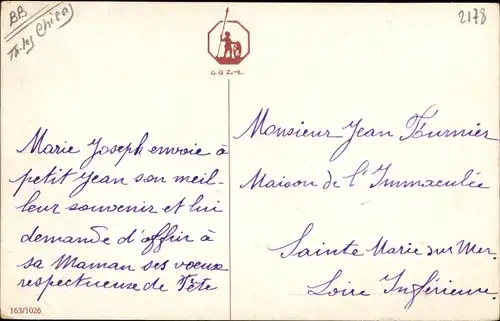 BB
2178
G.B.Z.-L.
Marie Joseph envoie à
petit Jean son meil-
leur souvenir et lui
demande d'offrir à
sa Maman ses voeux
respectueuse de Fête
Monsieur Jean Furnier
Maison de l'Immaculée
Sainte Marie sur Mer
Loire Inférieure
163/1026